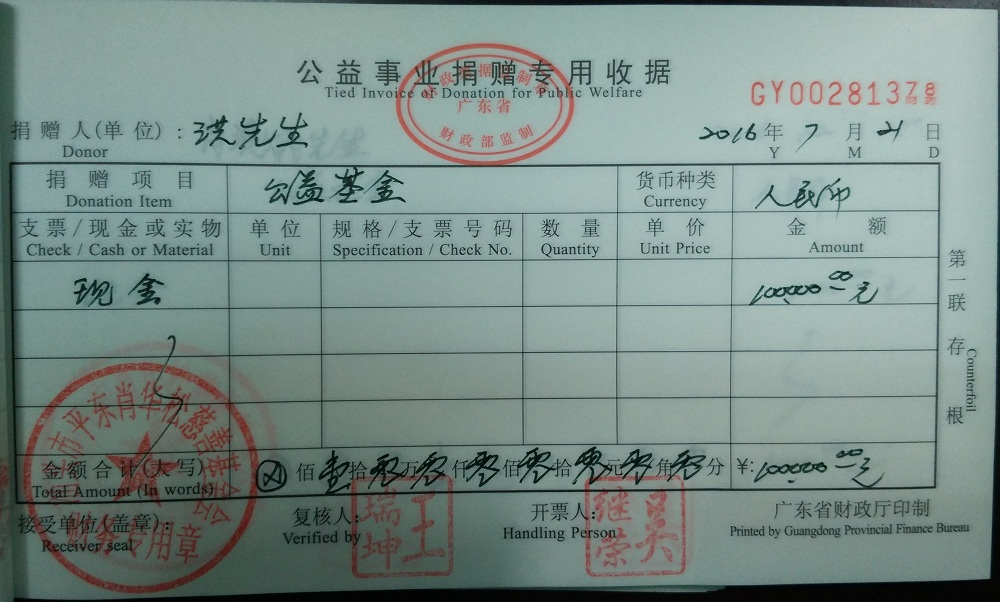 公益事业捐赠专用收据
Tied Invoice of Donation for Public Welfare
广东省
财政部监制
GY00281378
捐赠人(单位): 洪先生
Donor
2016年 7月 21日
Y M D
捐赠项目 公益基金 货币种类 人民币
Donation Item Currency
支票/现金或实物 单位 规格/支票号码 数量 单价 金额
Check / Cash or Material Unit Specification / Check No. Quantity Unit Price Amount
现金 100000.00元
第一联 存根
Counterfoil
金额合计(大写) ⊗佰壹拾零万零仟零佰零拾零元零角零分 ¥: 100000.00元
Total Amount (In words)
接受单位(盖章): 复核人: 开票人: 广东省财政厅印制
Receiver seal Verified by Handling Person Printed by Guangdong Provincial Finance Bureau
市平东肖华松慈善基金会
财务专用章
王瑞坤
吴继荣